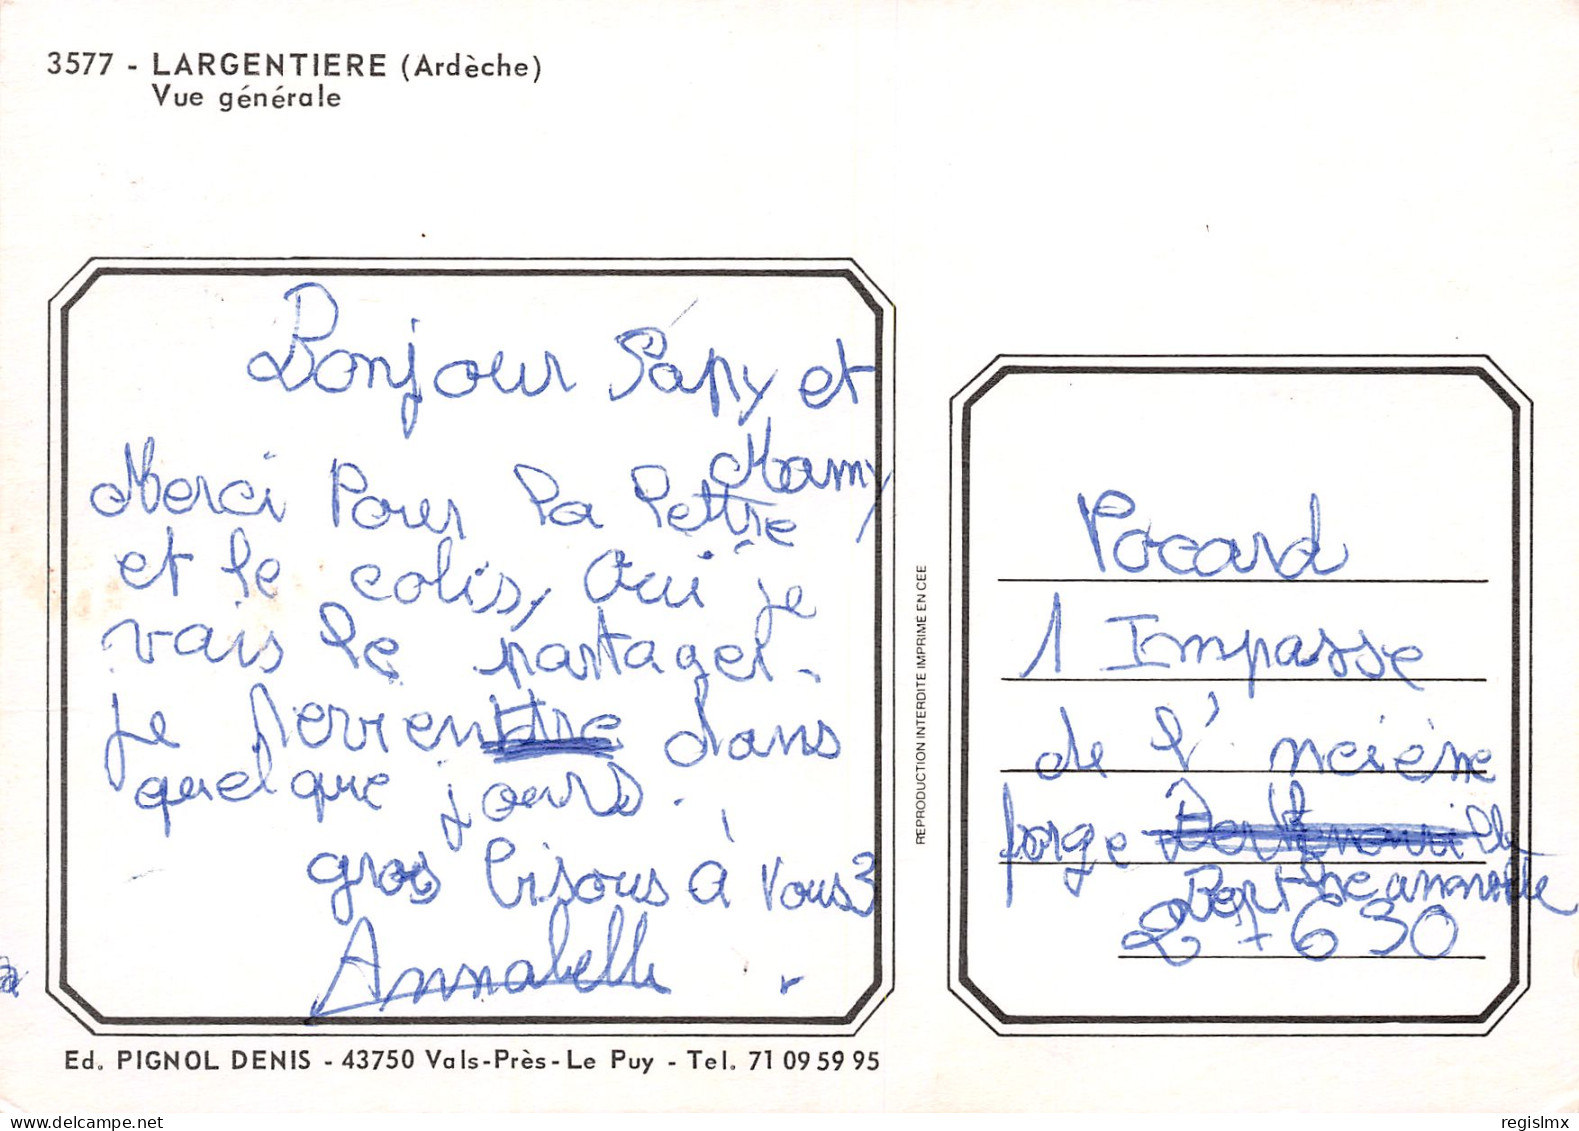 3577 - LARGENTIERE (Ardèche)
Vue générale
Bonjour Papy et
Mamy
Merci Pour la lettre
et le colis, Oui je
vais le partager.
je reviendre dans
quelque jours.
gros bisous à Vous 3
Annabelle
REPRODUCTION INTERDITE IMPRIME EN CEE
Pocard
1 Impasse
de l'ncième
forge
27630
Ed. PIGNOL DENIS - 43750 Vals-Près-Le Puy - Tel. 71 09 59 95
regislmx